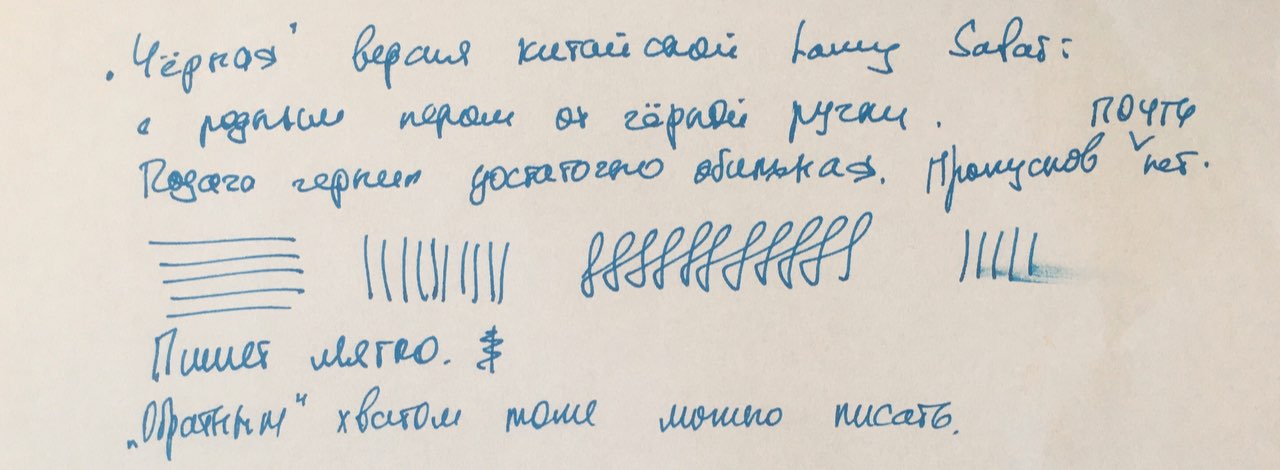 „Чёрная" версия китайской Lamy Safari:
с родным пером от чёрной ручки.
Подача чернил достаточно обильная. Пропусков почти нет.
Пишет мягко.
„Обратным" хватом тоже можно писать.